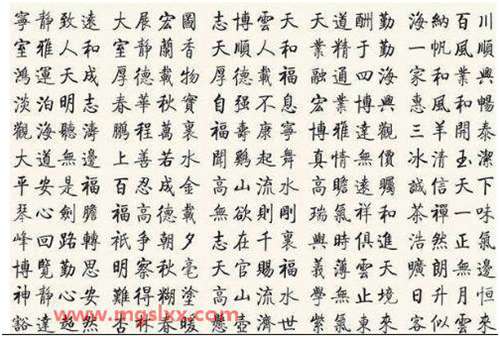 寧靜致遠 大展宏圖 志博雲天 天道酬勤 海納百川
室雅人和 室靜蘭香 大順人和 業精于勤 一帆風順
鴻運天成 厚德載物 厚德載福 融通四海 家和業興
淡泊明志 春華秋實 自强不息 宏業博興 惠風和暢
觀海聽濤 鵬程萬裏 福壽康寧 博雅達觀 三羊開泰
大道無邊 上善若水 聞鷄起舞 真情無價 冰清玉潔
平安是福 百忍成金 高山流水 高瞻遠矚 誠信天下
琴心劍膽 福高德載 無欲則剛 瑞氣祥和 茶禪一味
峰回路轉 衹爭朝夕 志在千裏 與時俱進 浩然正氣
博覽勤思 明察秋毫 天官賜福 義薄雲天 曠朗無邊
神靜心安 難得糊塗 高山流水 學無止境 日升月恒
豁達超然 杏林春暖 懸壺濟世 紫氣東來 客似雲來
www.mgslxx.com